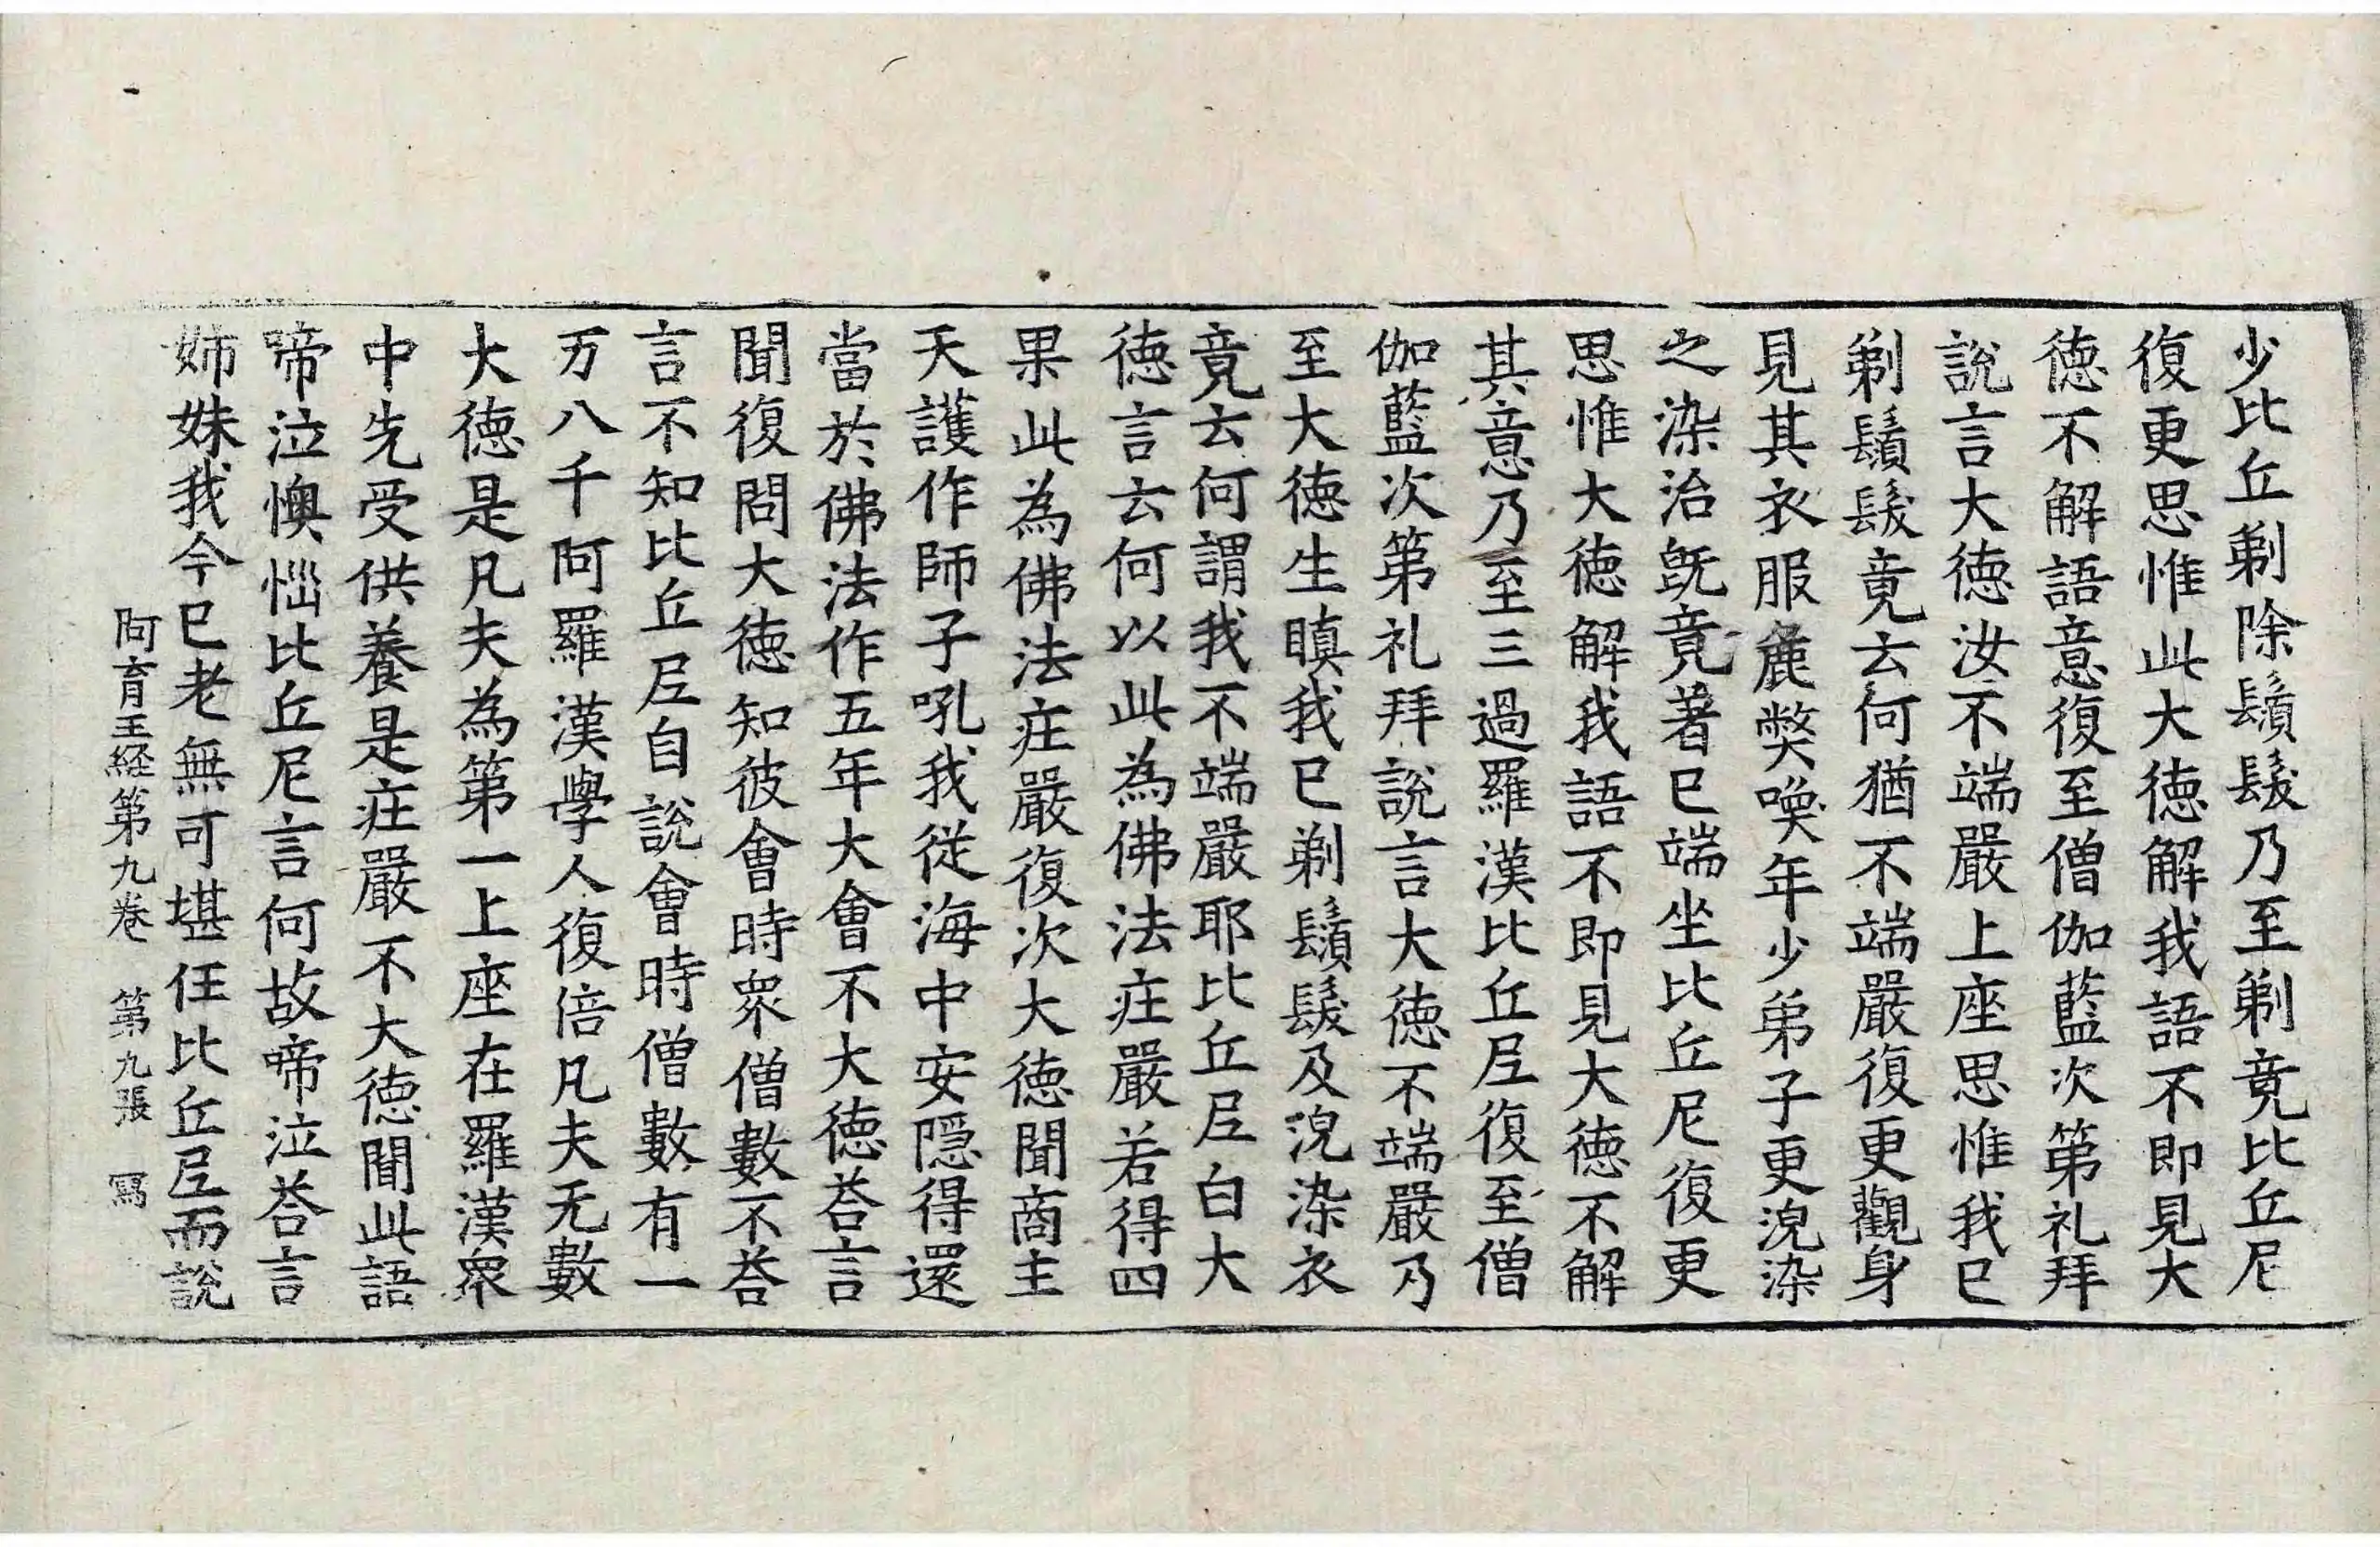 少比丘剃除鬚髮乃至剃竟比丘尼
復更思惟此大徳解我語不即見大
徳不解語意復至僧伽藍次第礼拜
說言大徳汝不端嚴上座思惟我已
剃鬚髮竟云何猶不端嚴復更觀身
見其衣服麁弊喚年少弟子更浣染
之染治旣竟著已端坐比丘尼復更
思惟大徳解我語不即見大徳不解
其意乃至三過羅漢比丘尼復至僧
伽藍次第礼拜說言大徳不端嚴乃
至大徳生瞋我已剃鬚髮及浣染衣
竟云何謂我不端嚴耶比丘尼白大
徳言云何以此為佛法庄嚴若得四
果此為佛法庄嚴復次大徳聞商主
天護作師子吼我従海中安隱得還
當於佛法作五年大會不大徳荅言
聞復問大徳知彼會時衆僧數不荅
言不知比丘尼自說會時僧數有一
万八千阿羅漢學人復倍凡夫无數
大徳是凡夫為第一上座在羅漢衆
中先受供養是庄嚴不大徳聞此語
啼泣懊惱比丘尼言何故啼泣荅言
姉妹我今已老無可堪任比丘尼而說
阿育王経第九卷　第九張　寫